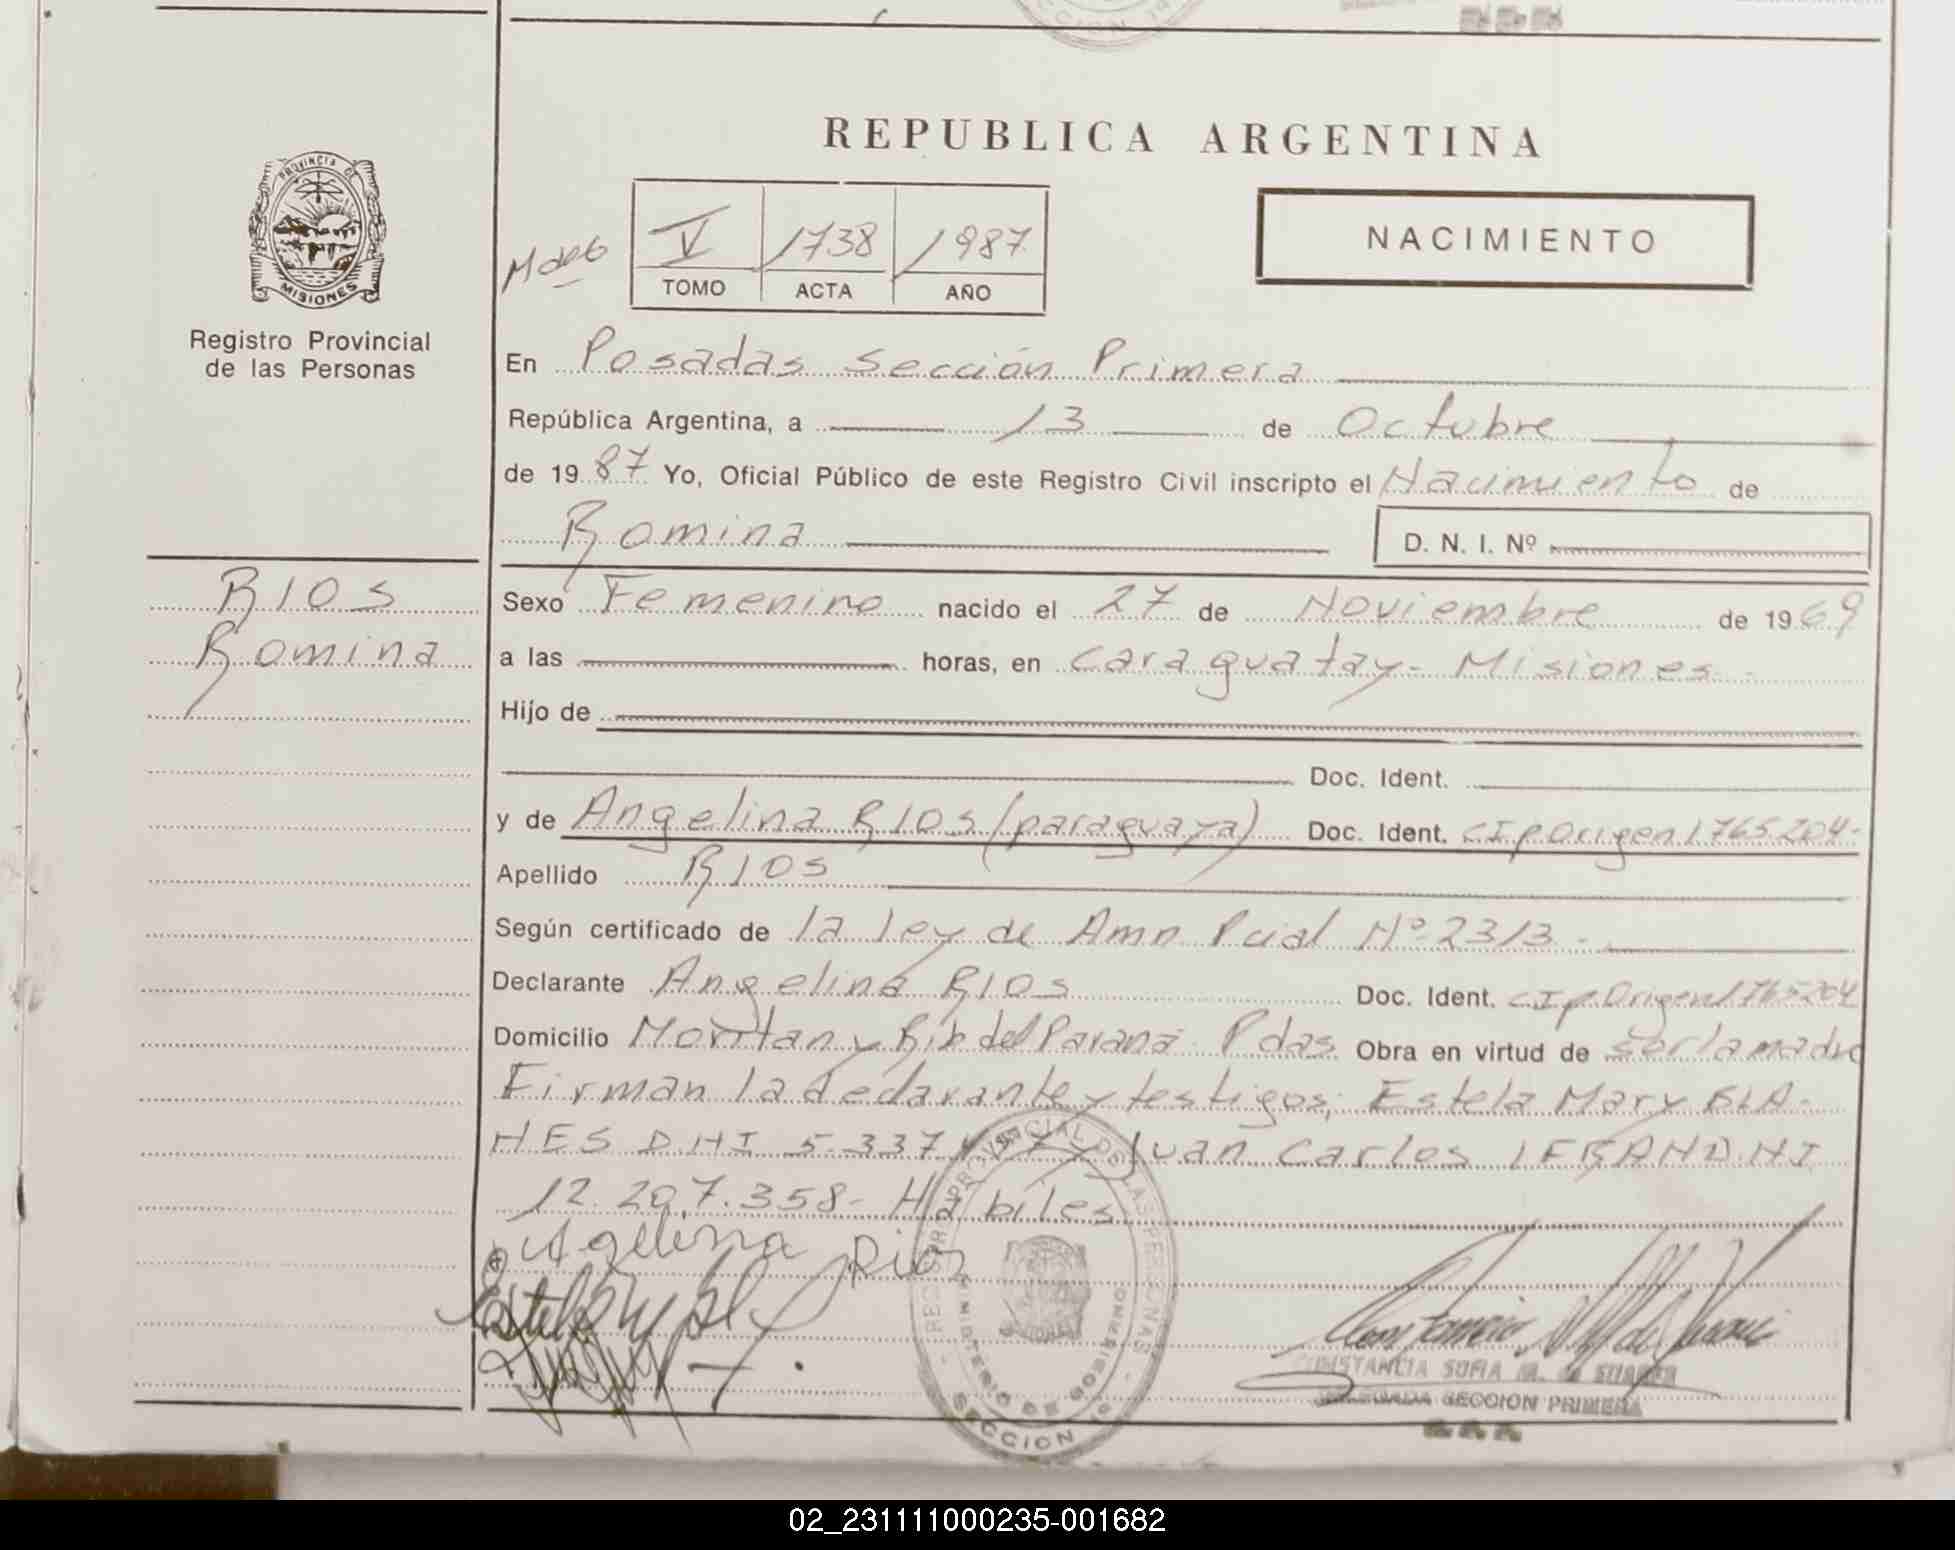 REPUBLICA ARGENTINA
PROVINCIA DE
MISIONES
Registro Provincial
de las Personas
V 1738 1987
TOMO ACTA AÑO
NACIMIENTO
En Posadas Sección Primera
República Argentina, a 13 de Octubre
de 1987 Yo, Oficial Público de este Registro Civil inscripto el Nacimiento de
Romina D. N. I. Nº
RIOS
Romina
Sexo Femenino nacido el 27 de Noviembre de 1969
a las horas, en Caraguatay - Misiones -
Hijo de
Doc. Ident.
y de Angelina RIOS (paraguaya) Doc. Ident. CIpOrigen 1765204-
Apellido RIOS
Según certificado de la ley de Amn Pcial Nº 2313 -
Declarante Angelina RIOS Doc. Ident. CIp.Origen 1765204
Domicilio y del Parana Pdas Obra en virtud de ser la madre
Firman la declarante y testigos; Estela Mary BLA-
NES D.NI 5.337 y Juan Carlos D.NI
12.207.358- Habiles
Agelina Rios
REGISTRO PROVINCIAL DE LAS PERSONAS
MINISTERIO DE GOBIERNO
SECCION
CONSTANCIA SOFIA M. de SUAREZ
DELEGADA SECCION PRIMERA
02_231111000235-001682